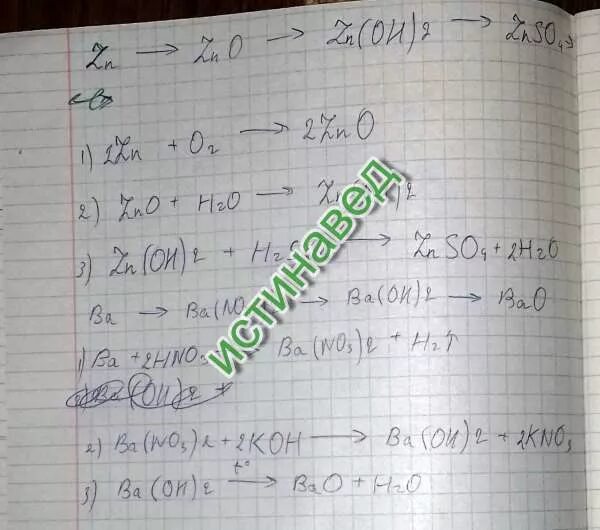 Zn → ZnO → Zn(OH)2 → ZnSO4
1) 2Zn + O2 → 2ZnO
2) ZnO + H2O →
3) Zn(OH)2 + → ZnSO4 + 2H2O
Ba → → Ba(OH)2 → BaO
1) Ba + 2HNO3 Ba(NO3)2 + H2↑
2) Ba(NO3)2 + 2KOH → Ba(OH)2 + 2KNO3
3) Ba(OH)2 t° → BaO + H2O
истинавед